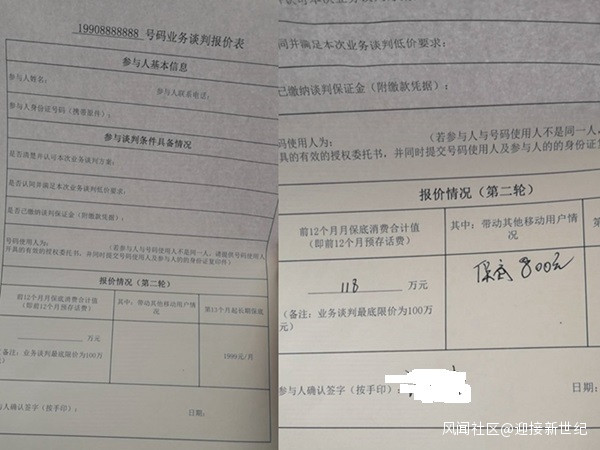 19908888888 号码业务谈判报价表
参与人基本信息
参与人姓名：
参与人联系电话：
参与人身份证号码（携带原件）：
参与谈判条件具备情况
是否清楚并认可本次业务谈判方案：
是否认同并满足本次业务谈判低价要求：
是否已缴纳谈判保证金（附缴款凭据）：
号码使用人为：
（若参与人与号码使用人不是同一人，请提供号码使用人
开具的有效的授权委托书，并同时提交号码使用人及参与人的身份证复印件）
报价情况（第二轮）
前12个月月保底消费合计值
（即前12个月预存话费）
其中：带动其他移动用户情
况
第13个月起长期保底
万元
（备注：业务谈判最底限价为100万
元）
1999元/月
参与人确认签字（按手印）：
日期：
同并满足本次业务谈判低价要求：
已缴纳谈判保证金（附缴款凭据）：
码使用人为：
（若参与人与号码使用人不是同一人，
具的有效的授权委托书，并同时提交号码使用人及参与人的的身份证复
报价情况（第二轮）
前12个月月保底消费合计值
（即前12个月预存话费）
其中：带动其他移动用户情
况
113 万元
保底800元
（备注：业务谈判最底限价为100万
元）
参与人确认签字（按手印）：
日期：
风闻社区@迎接新世纪